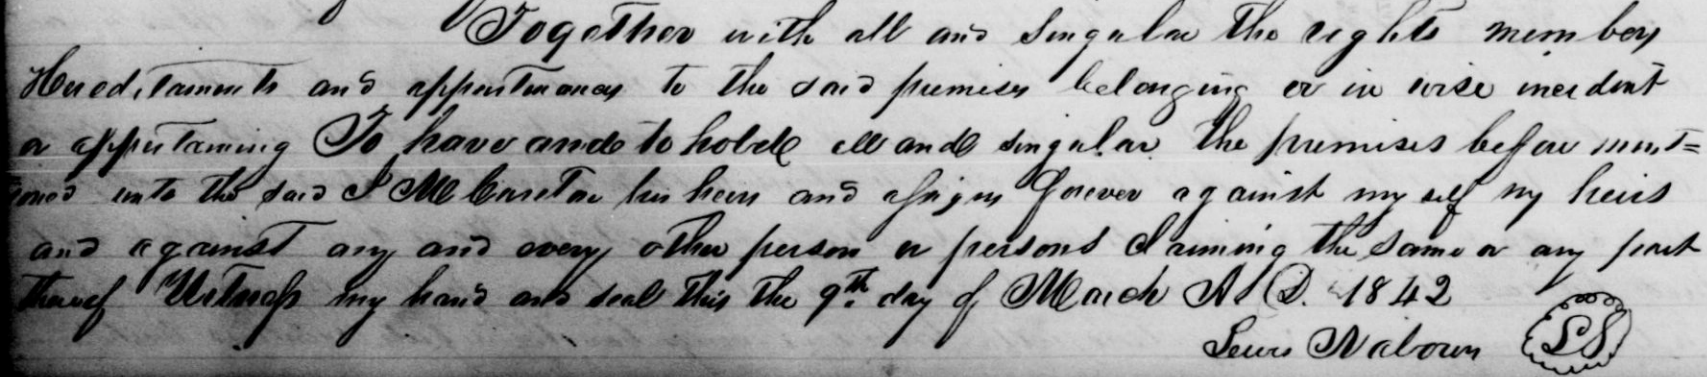 Together with all and Singular the rights members
Hereditaments and appurtenances to the said premises belonging or in wise incident
or appertaining To have and to hold all and singular the premises before ment=
ioned unto the said I M his heirs and assigns forever against my self my heirs
and against any and every other person or persons Claiming the same or any part
thereof Witness my hand and seal this the 9th day of March A. D. 1842
Lewis Nabours LS